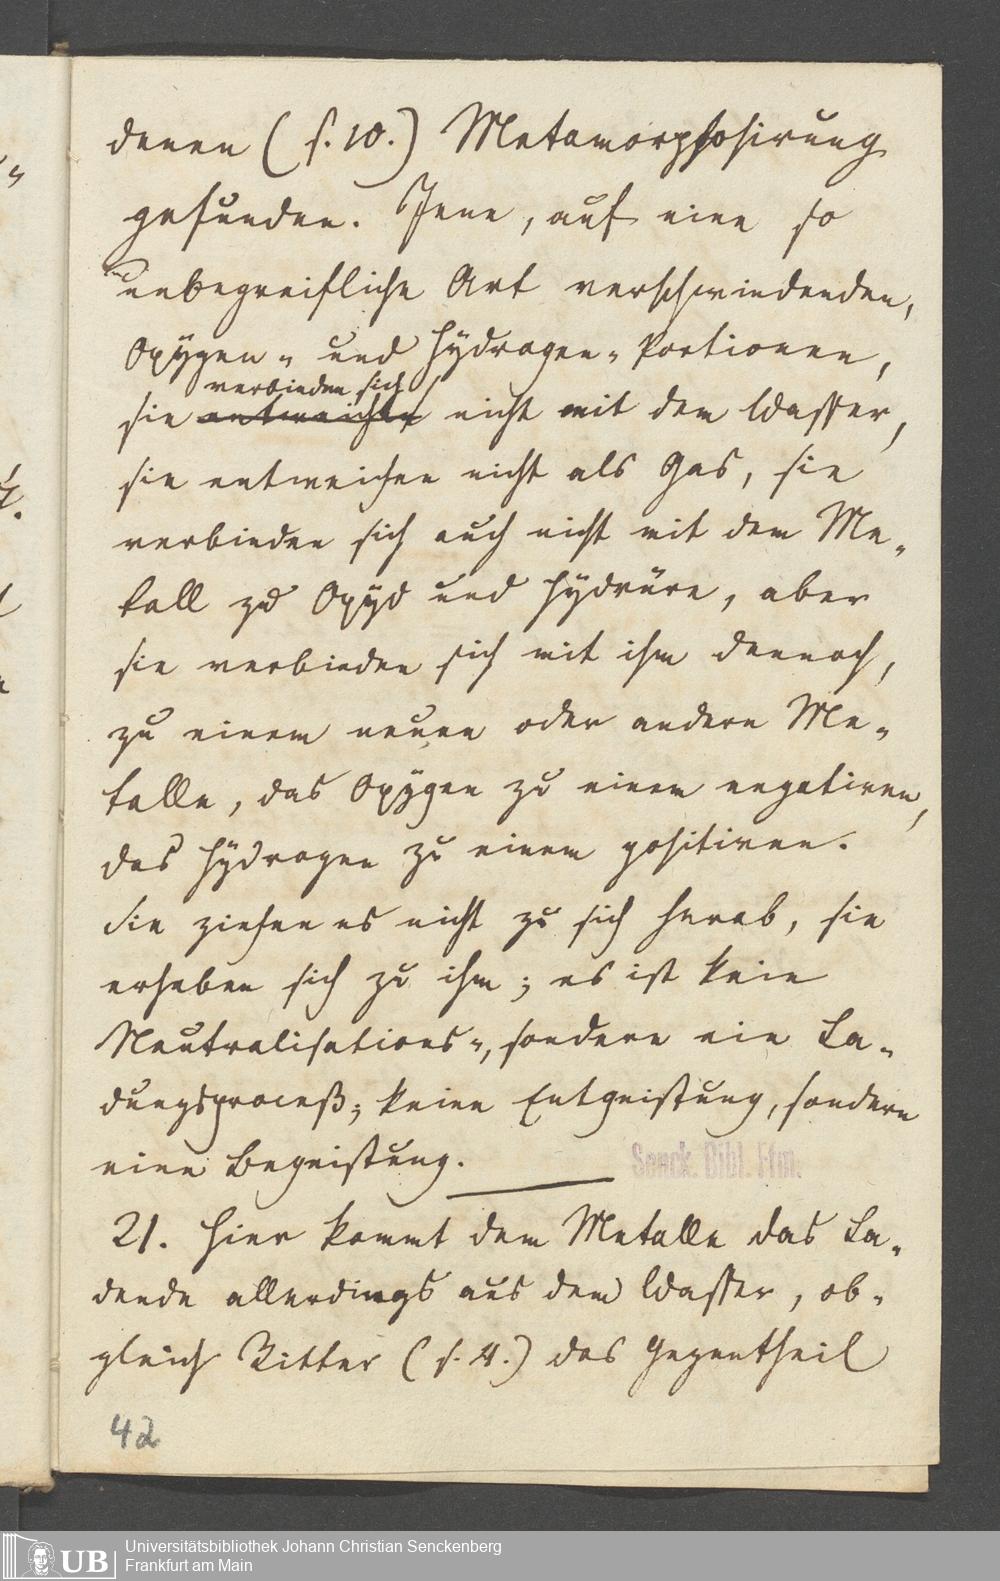 denen (s. 10.) Metamorphosirung
gefunden. Jene, auf eine so
unbegreifliche Art verschwindenden,
Oxygen- und Hydrogen-Portionen,
verbinden sich
sie entweichen nicht mit dem Wasser,
sie entweichen nicht als Gas, sie
verbinden sich auch nicht mit dem Me-
tall zu Oxyd und Hydrüre, aber
sie verbinden sich mit ihm dennoch,
zu einem neuen oder andern Me-
talle, das Oxygen zu einem negativen,
das Hydrogen zu einem positiven.
Sie ziehen es nicht zu sich herab, sie
erheben sich zu ihm; es ist kein
Neutralisations-, sondern ein La-
dungsproceß; keine Entgeistung, sondern
eine Begeistung.
Senck. Bibl. Ffm.
21. Hier kommt dem Metalle das La-
dende allerdings aus dem Wasser, ob-
gleich Ritter (s. 4.) das Gegentheil
42
UB
Universitätsbibliothek Johann Christian Senckenberg
Frankfurt am Main